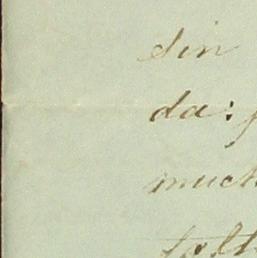 sin
da:
much
falt